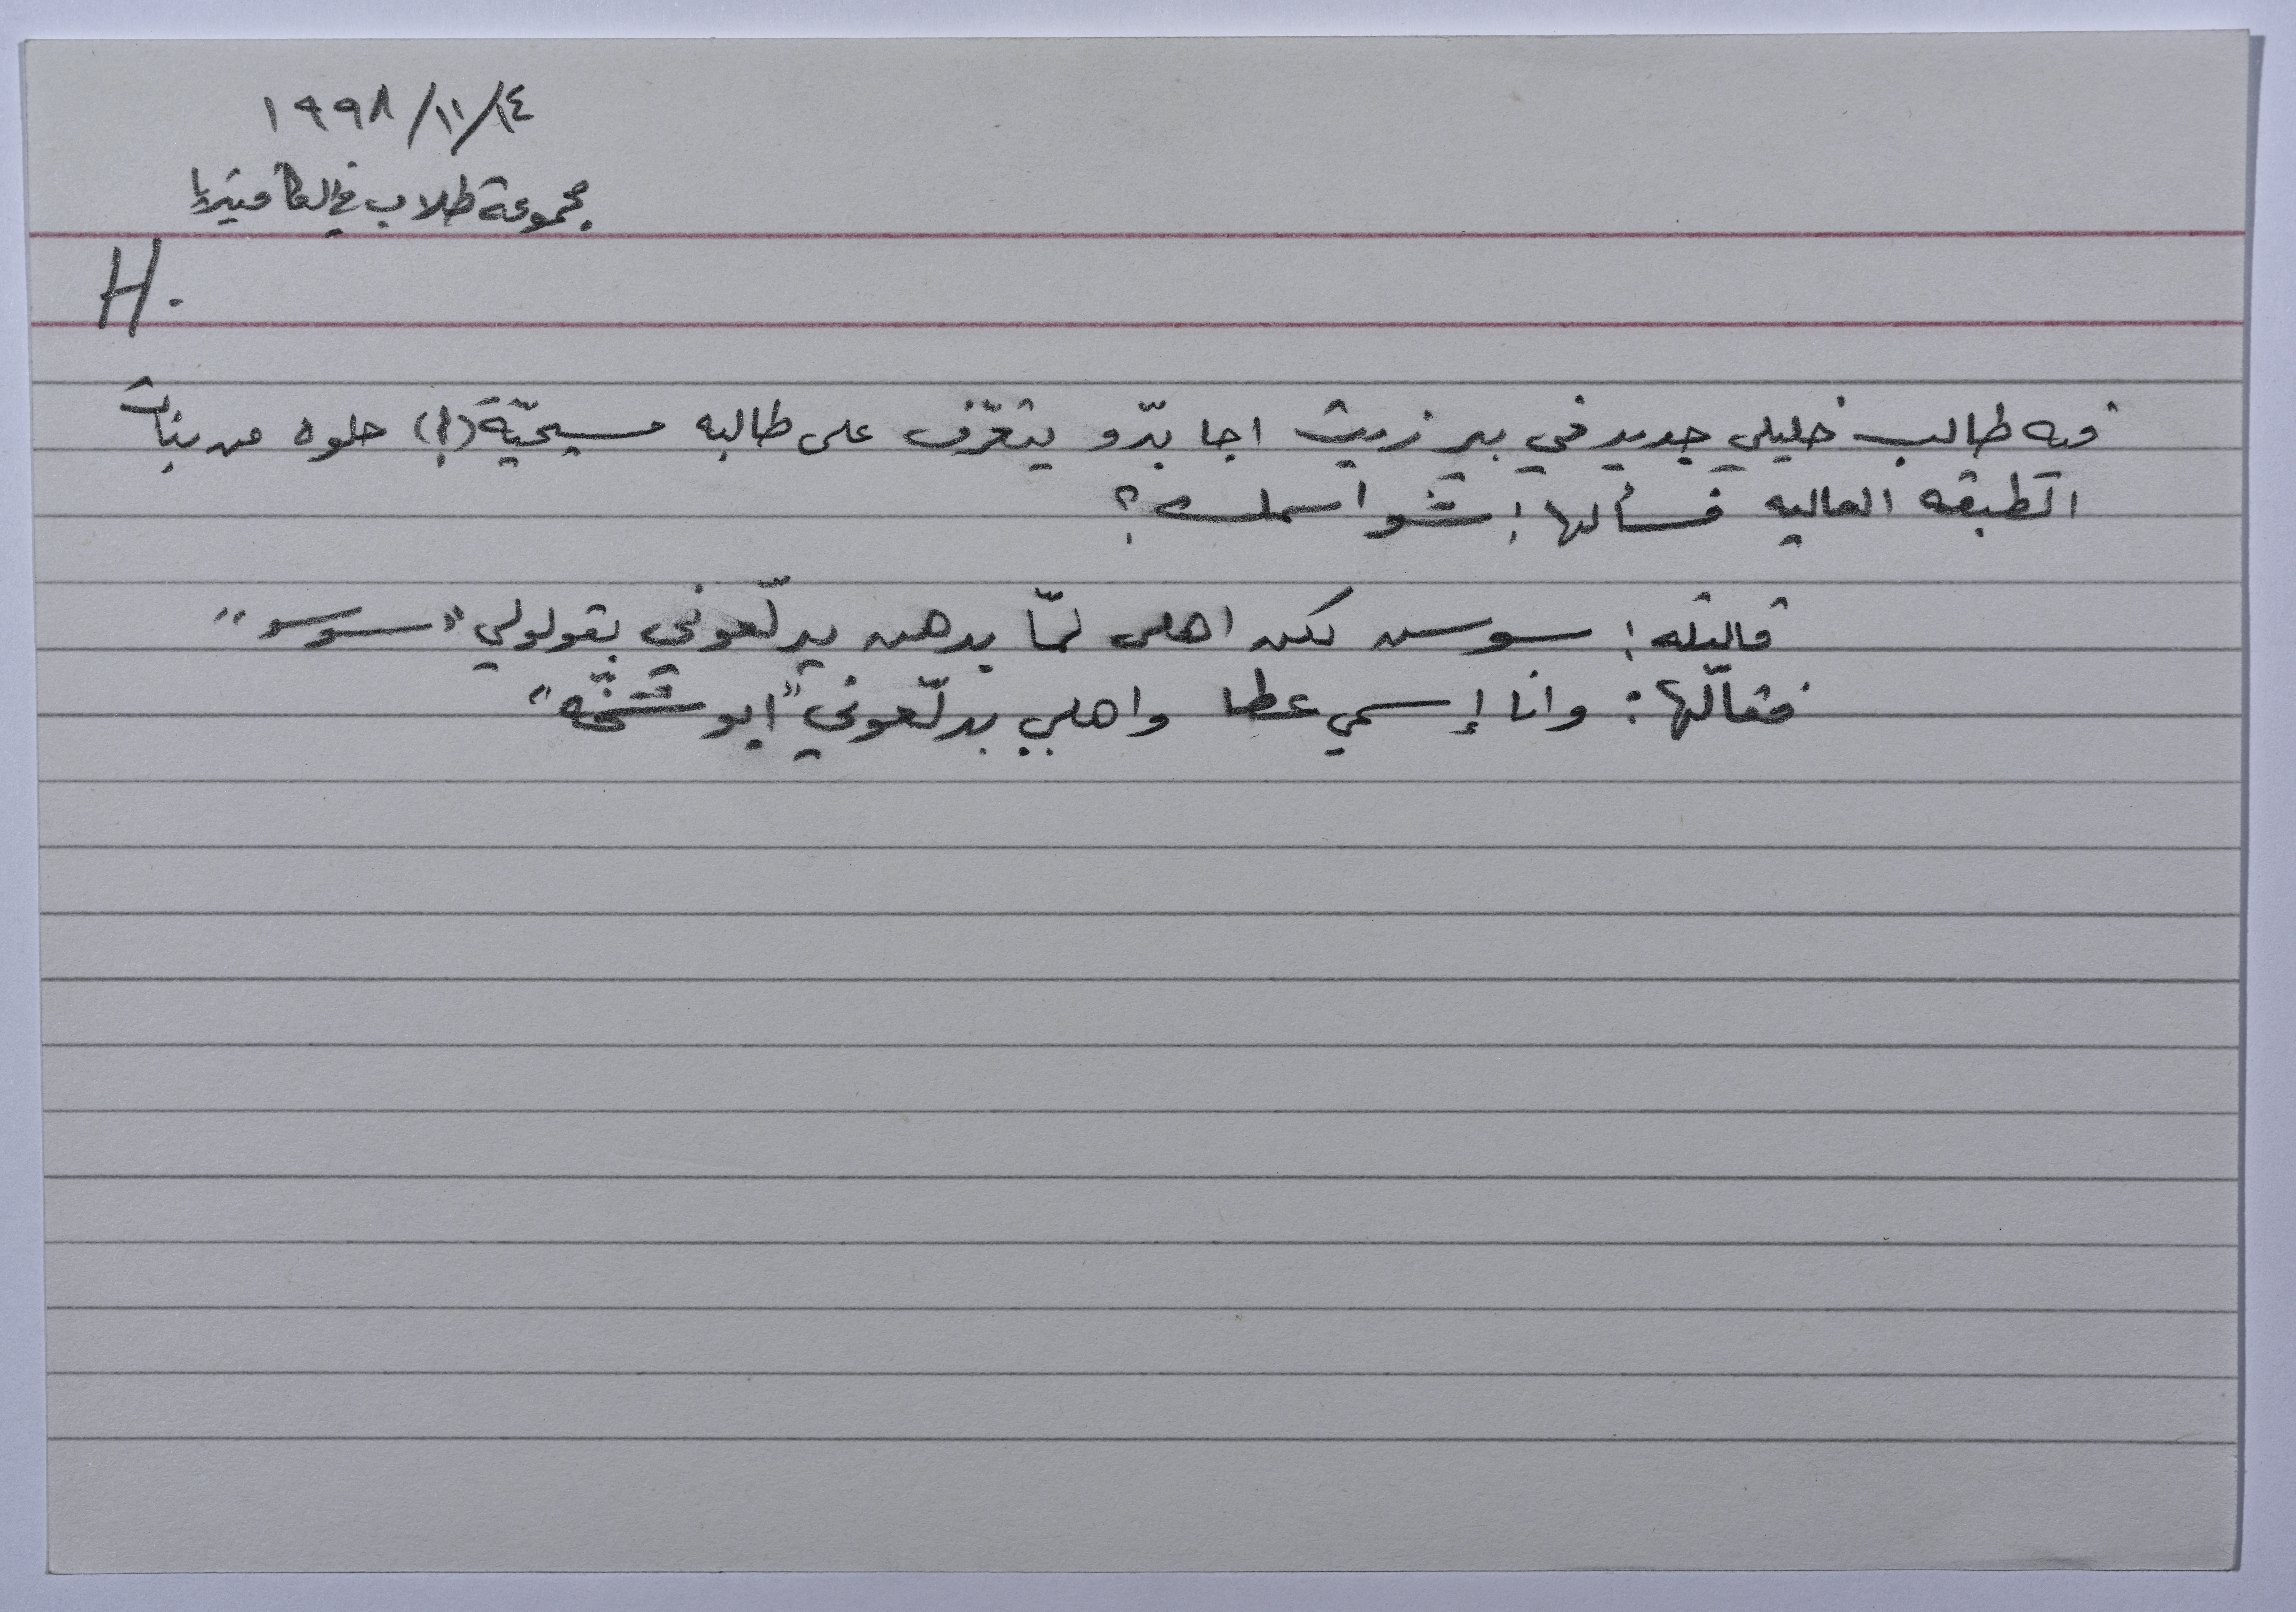 ١٩٩٨/١١/١٤
مجموعة طلاب في الكافتيريا
H.
فيه طالب خليلي جديد في بير زيت اجا بدّو يتعرّف على طالبه مسيحيّة (!) حلوه من بنات
الطبقه العاليه فسألها: شو اسمك؟
قالتله: سوسن لكن اهلي لمّا بدهن يدلّعوني بقولولي "سوسو"
فقالّها: وانا إسمي عطا واهلي بدلّعوني "ابو شخّه"